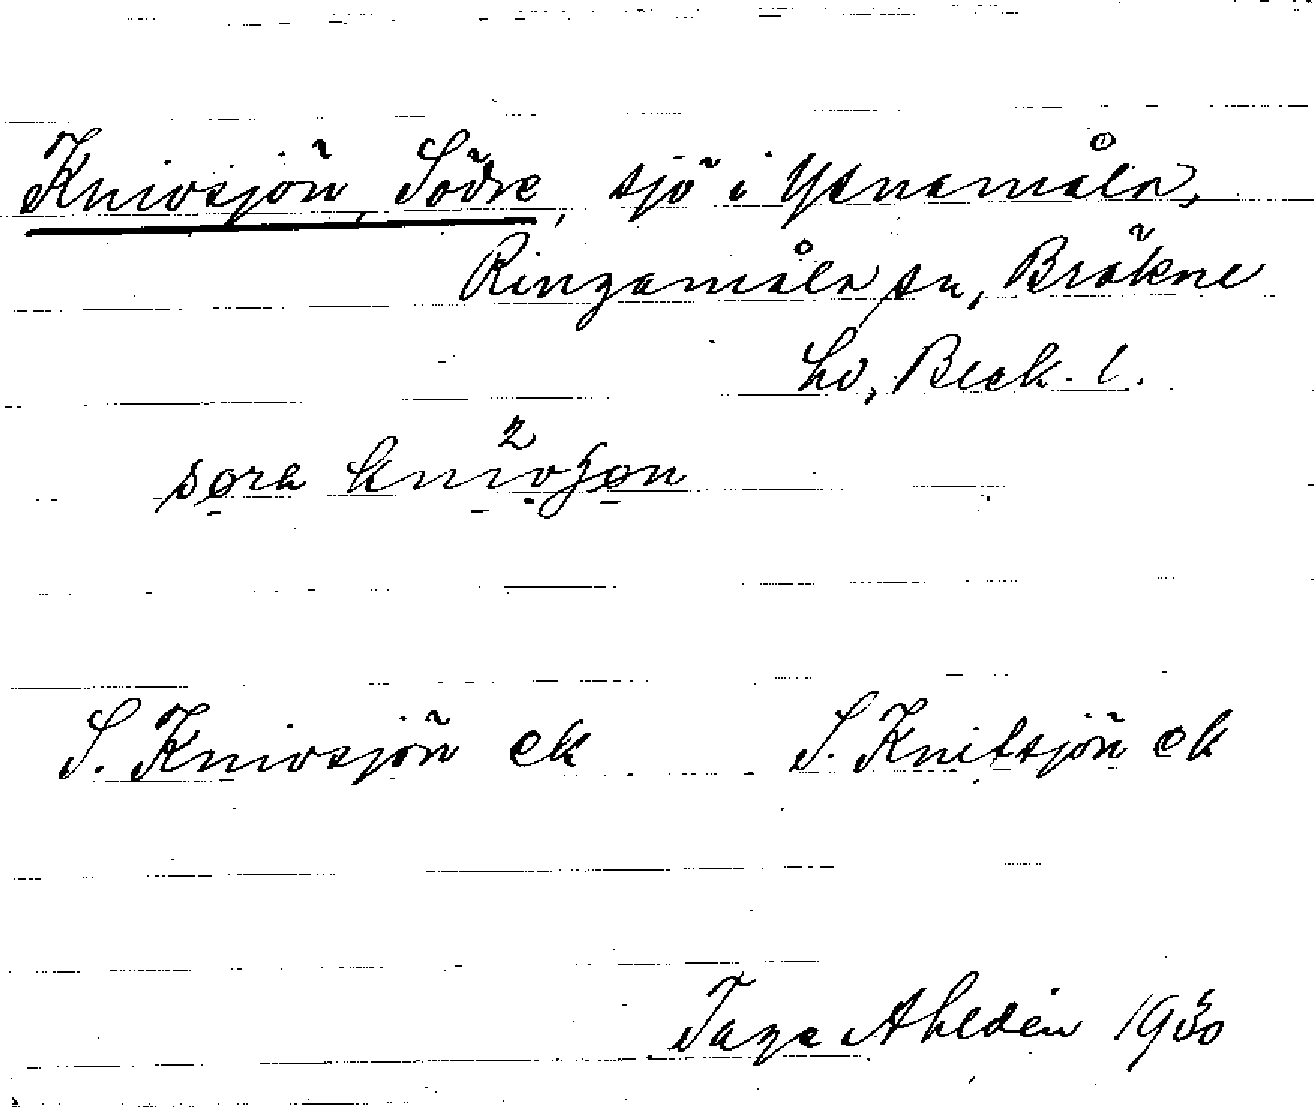 Knivsjön, Södre, sjö i Ysnamåla,
Ringamåla sn, Bräkne
hd, Blek. l.
S. Knivsjön ek S. Knifsjön ek
Tage Ahldén 1930